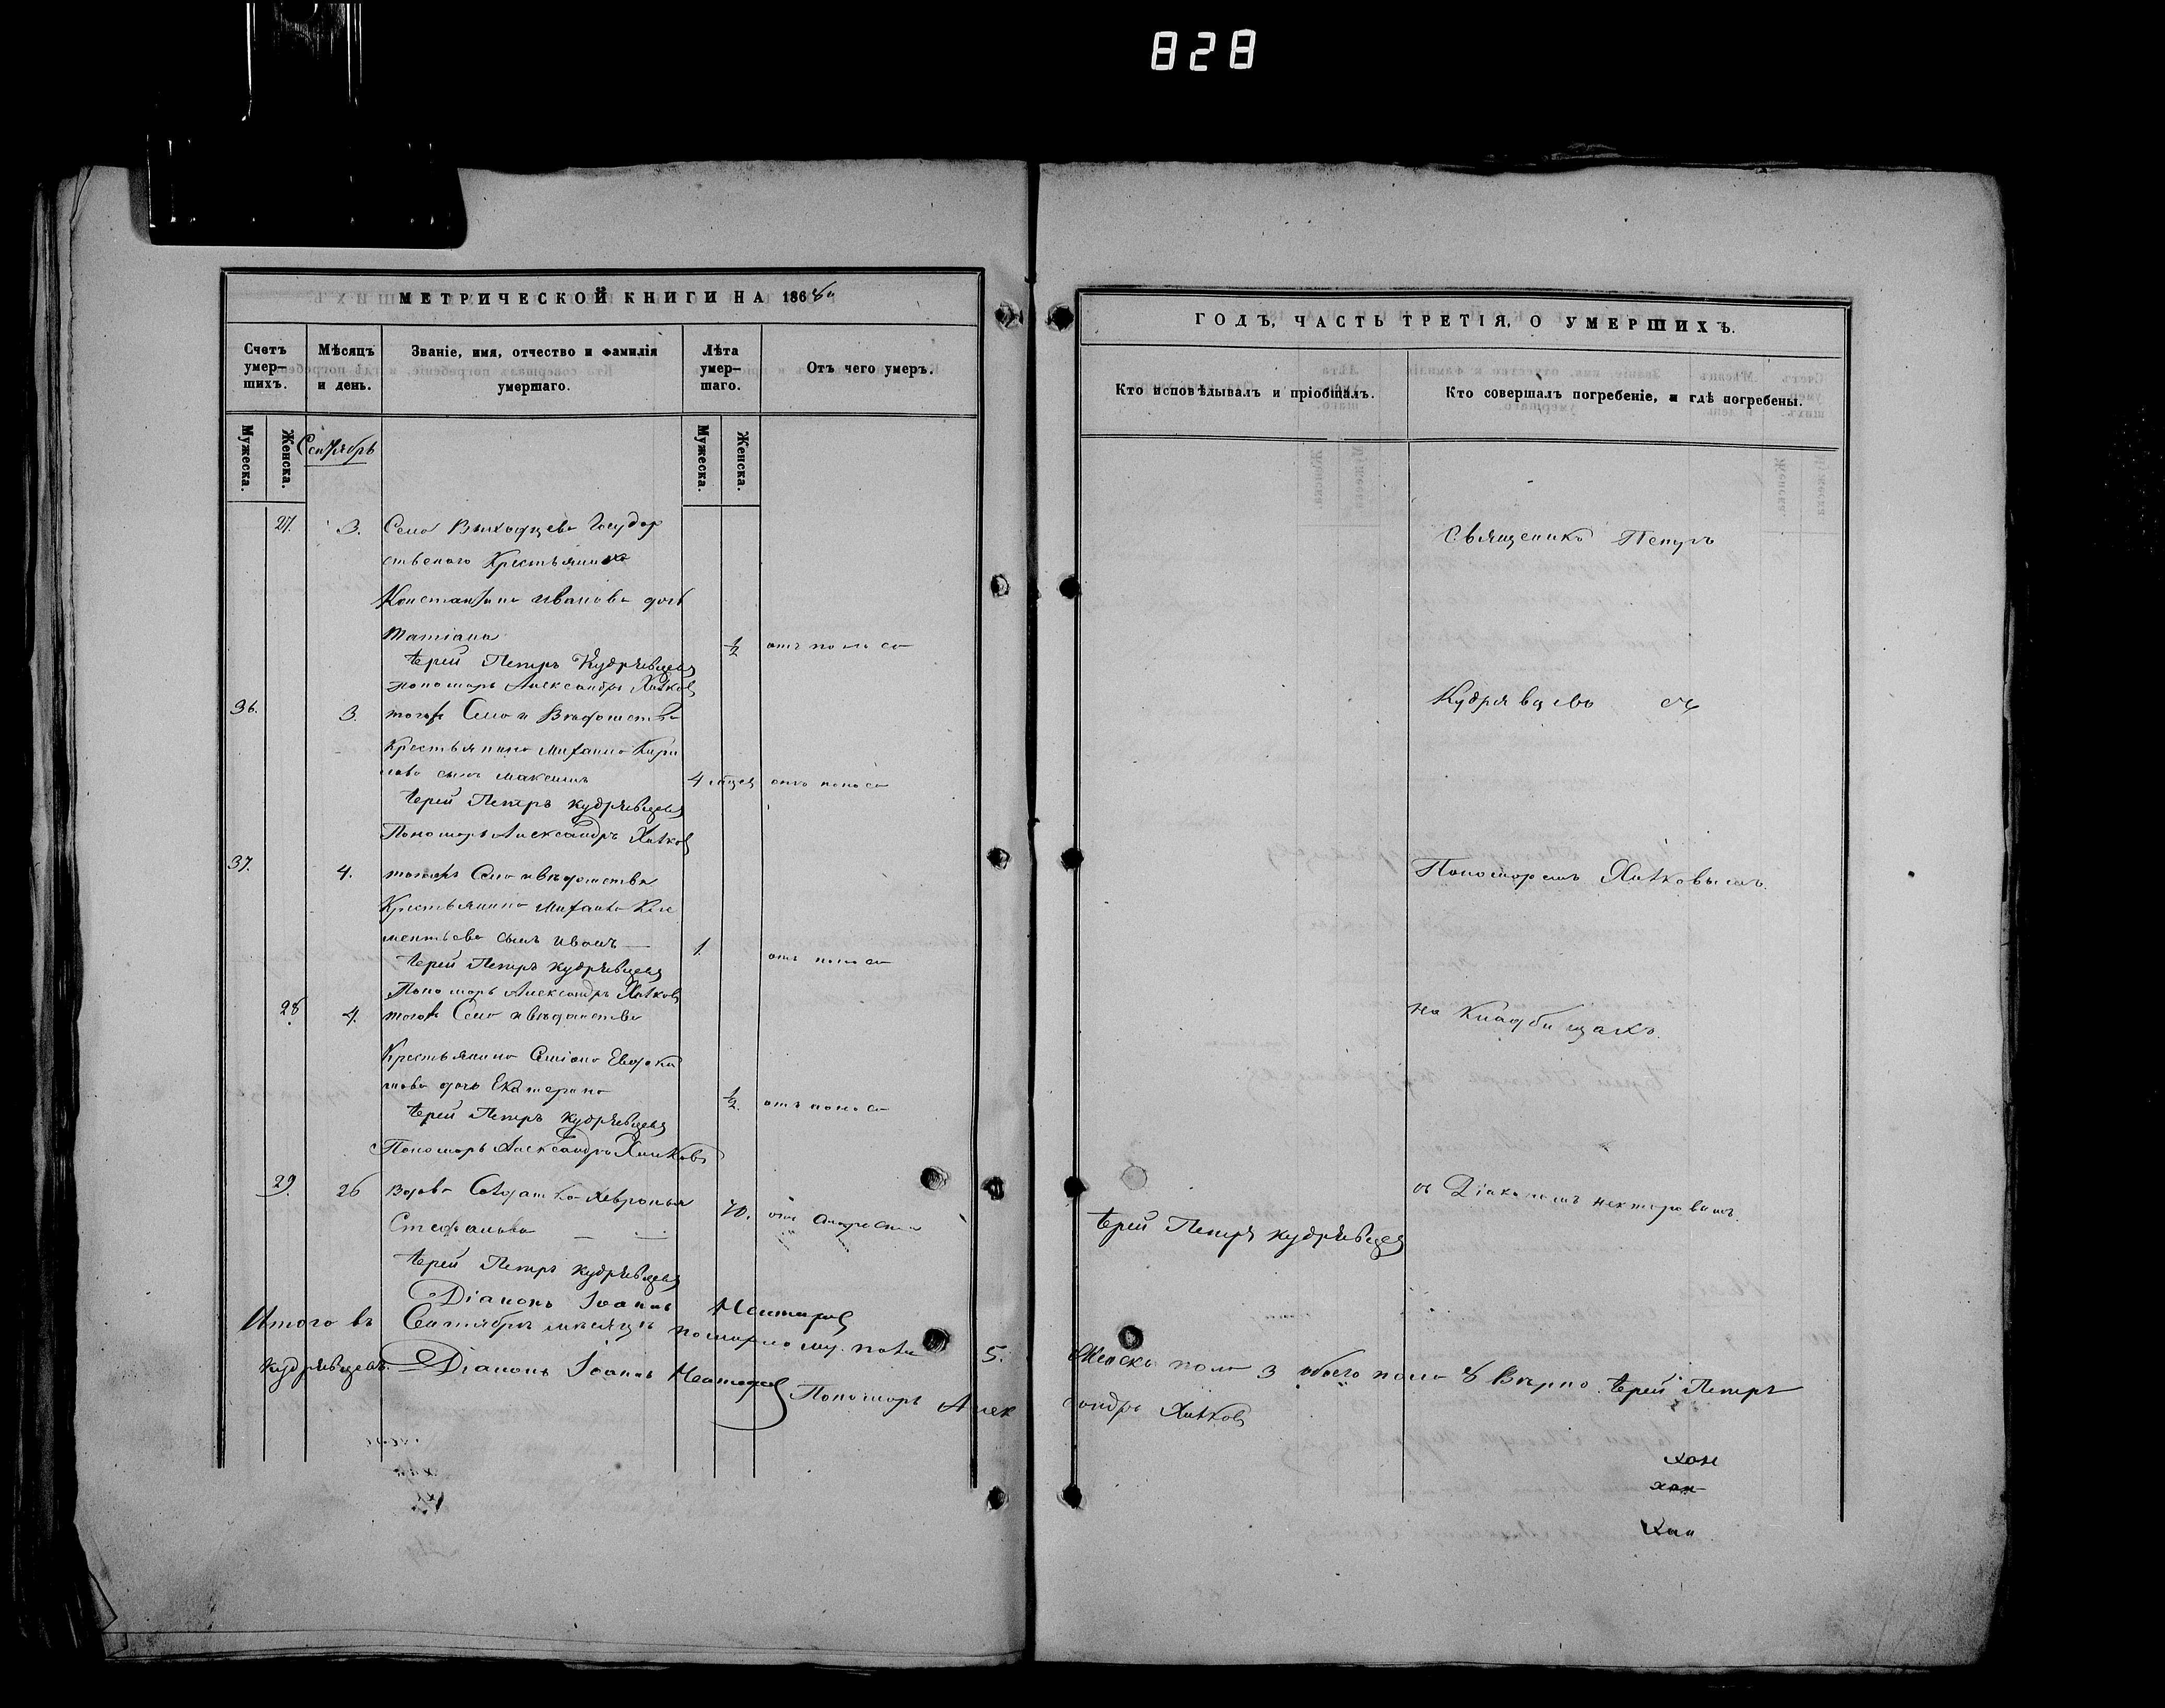 828
МЕТРИЧЕСКОЙ КНИГИ НА 1868й
Счетъ умер-шихъ.
Мѣсяцъ и день.
Званіе, имя, отчество и фамилія умершаго.
Лѣта умер-шаго.
Отъ чего умеръ.
Мужеска.
Женска.
Мужеска.
Женска.
Сентябрь
27. 3. Села Выходцева Государ
ственого Крестьянина
Константина Иванова дочь
Татіана 1/2 отъ поноса
Іерей Петръ Кудрявцевъ
Пономарь Александръ Хитковъ
36. 3. тогожъ Села и Вѣдомства
Крестьянина Михаила Кири
лова сынъ Максимъ 4 мѣсяц отъ поноса
Іерей Петръ Кудрявцевъ
Пономарь Александръ Хитковъ
37. 4. тогожъ Села и вѣдомства
Крестьянина Михаила Кле
ментьева сынъ Иванъ 1. отъ поноса
Іерей Петръ Кудрявцевъ
Пономарь Александръ Хитковъ
28. 4. тогожъ Села и вѣдомства
Крестьянина Симіона Евдоки
мова дочь Екатерина 1/2. отъ поноса
Іерей Петръ Кудрявцевъ
Пономарь Александръ Хитковъ
29. 26 вдова Солдатка Хевронья 70. отъ старости
Стефанова
Іерей Петръ Кудрявцевъ
Діаконъ Іоаннъ Нектаровъ
Итого въ Сентябрѣ мѣсяцѣ померло му. пола 5.
Кудрявцевъ. Діаконъ Іоаннъ Нектаровъ Пономарь Алек
ГОДЪ, ЧАСТЬ ТРЕТІЯ, О УМЕРШИХЪ.
Кто исповѣдывалъ и пріобщалъ.
Кто совершалъ погребеніе, и гдѣ погребены.
Священикъ Петръ
Кудрявцевъ съ
Пономаремъ Хитковымъ.
на Кладбищахъ.
съ Діакономъ Нектаровымъ.
Іерей Петръ Кудрявцевъ
Женска пола 3 обоего пола 8 Вѣрно. Іерей Петръ
сандръ Хитковъ